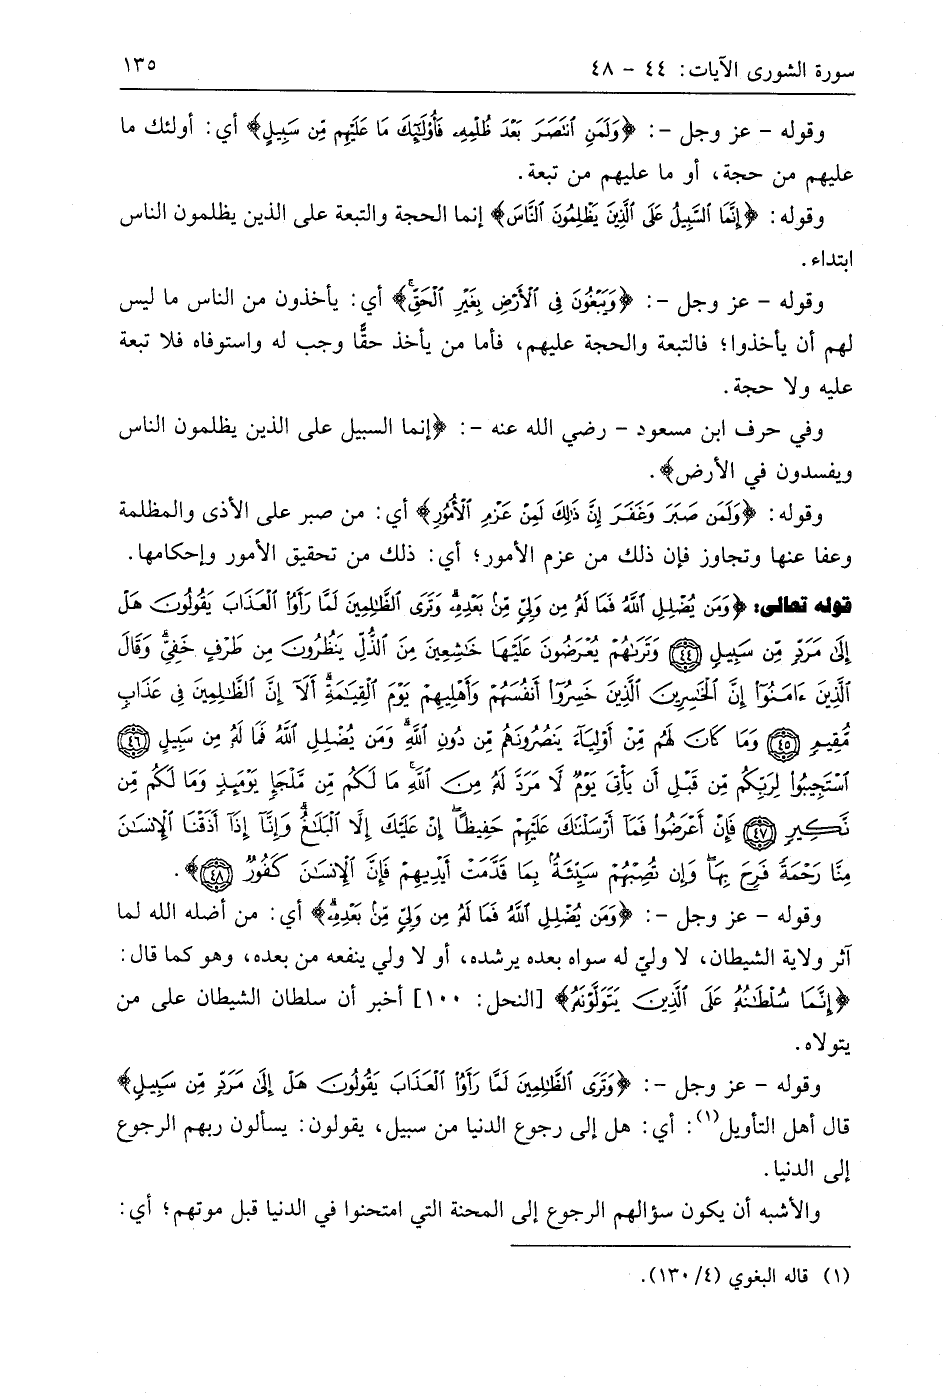 سورة الشورى الآيات: ٤٤ - ٤٨ ١٣٥
وقوله - عز وجل -: ﴿وَلَمَنِ ٱنتَصَرَ بَعْدَ ظُلْمِهِۦ فَأُو۟لَـٰٓئِكَ مَا عَلَيْهِم مِّن سَبِيلٍ﴾ أي: أولئك ما
عليهم من حجة، أو ما عليهم من تبعة.
وقوله: ﴿إِنَّمَا ٱلسَّبِيلُ عَلَى ٱلَّذِينَ يَظْلِمُونَ ٱلنَّاسَ﴾ إنما الحجة والتبعة على الذين يظلمون الناس
ابتداء.
وقوله - عز وجل -: ﴿وَيَبْغُونَ فِى ٱلْأَرْضِ بِغَيْرِ ٱلْحَقِّ ۚ﴾ أي: يأخذون من الناس ما ليس
لهم أن يأخذوا؛ فالتبعة والحجة عليهم، فأما من يأخذ حقًّا وجب له واستوفاه فلا تبعة
عليه ولا حجة.
وفي حرف ابن مسعود - رضي الله عنه -: ﴿إنما السبيل على الذين يظلمون الناس
ويفسدون في الأرض﴾.
وقوله: ﴿وَلَمَن صَبَرَ وَغَفَرَ إِنَّ ذَٰلِكَ لَمِنْ عَزْمِ ٱلْأُمُورِ﴾ أي: من صبر على الأذى والمظلمة
وعفا عنها وتجاوز فإن ذلك من عزم الأمور؛ أي: ذلك من تحقيق الأمور وإحكامها.
قوله تعالى: ﴿وَمَن يُضْلِلِ ٱللَّهُ فَمَا لَهُۥ مِن وَلِىٍّ مِّنۢ بَعْدِهِۦ ۗ وَتَرَى ٱلظَّـٰلِمِينَ لَمَّا رَأَوُا۟ ٱلْعَذَابَ يَقُولُونَ هَلْ
إِلَىٰ مَرَدٍّ مِّن سَبِيلٍ ٤٤ وَتَرَىٰهُمْ يُعْرَضُونَ عَلَيْهَا خَـٰشِعِينَ مِنَ ٱلذُّلِّ يَنظُرُونَ مِن طَرْفٍ خَفِىٍّ ۗ وَقَالَ
ٱلَّذِينَ ءَامَنُوٓا۟ إِنَّ ٱلْخَـٰسِرِينَ ٱلَّذِينَ خَسِرُوٓا۟ أَنفُسَهُمْ وَأَهْلِيهِمْ يَوْمَ ٱلْقِيَـٰمَةِ ۗ أَلَآ إِنَّ ٱلظَّـٰلِمِينَ فِى عَذَابٍ
مُّقِيمٍ ٤٥ وَمَا كَانَ لَهُم مِّنْ أَوْلِيَآءَ يَنصُرُونَهُم مِّن دُونِ ٱللَّهِ ۗ وَمَن يُضْلِلِ ٱللَّهُ فَمَا لَهُۥ مِن سَبِيلٍ ٤٦
ٱسْتَجِيبُوا۟ لِرَبِّكُم مِّن قَبْلِ أَن يَأْتِىَ يَوْمٌ لَّا مَرَدَّ لَهُۥ مِنَ ٱللَّهِ ۚ مَا لَكُم مِّن مَّلْجَإٍ يَوْمَئِذٍ وَمَا لَكُم مِّن
نَّكِيرٍ ٤٧ فَإِنْ أَعْرَضُوا۟ فَمَآ أَرْسَلْنَـٰكَ عَلَيْهِمْ حَفِيظًا ۖ إِنْ عَلَيْكَ إِلَّا ٱلْبَلَـٰغُ ۗ وَإِنَّآ إِذَآ أَذَقْنَا ٱلْإِنسَـٰنَ
مِنَّا رَحْمَةً فَرِحَ بِهَا ۖ وَإِن تُصِبْهُمْ سَيِّئَةٌۢ بِمَا قَدَّمَتْ أَيْدِيهِمْ فَإِنَّ ٱلْإِنسَـٰنَ كَفُورٌ ٤٨﴾.
وقوله - عز وجل -: ﴿وَمَن يُضْلِلِ ٱللَّهُ فَمَا لَهُۥ مِن وَلِىٍّ مِّنۢ بَعْدِهِۦ ۗ﴾ أي: من أضله الله لما
آثر ولاية الشيطان، لا وليّ له سواه بعده يرشده، أو لا ولي ينفعه من بعده، وهو كما قال:
﴿إِنَّمَا سُلْطَـٰنُهُۥ عَلَى ٱلَّذِينَ يَتَوَلَّوْنَهُۥ﴾ [النحل: ١٠٠] أخبر أن سلطان الشيطان على من
يتولاه.
وقوله - عز وجل -: ﴿وَتَرَى ٱلظَّـٰلِمِينَ لَمَّا رَأَوُا۟ ٱلْعَذَابَ يَقُولُونَ هَلْ إِلَىٰ مَرَدٍّ مِّن سَبِيلٍ﴾
قال أهل التأويل(١): أي: هل إلى رجوع الدنيا من سبيل، يقولون: يسألون ربهم الرجوع
إلى الدنيا.
والأشبه أن يكون سؤالهم الرجوع إلى المحنة التي امتحنوا في الدنيا قبل موتهم؛ أي:
(١) قاله البغوي (٤/ ١٣٠).